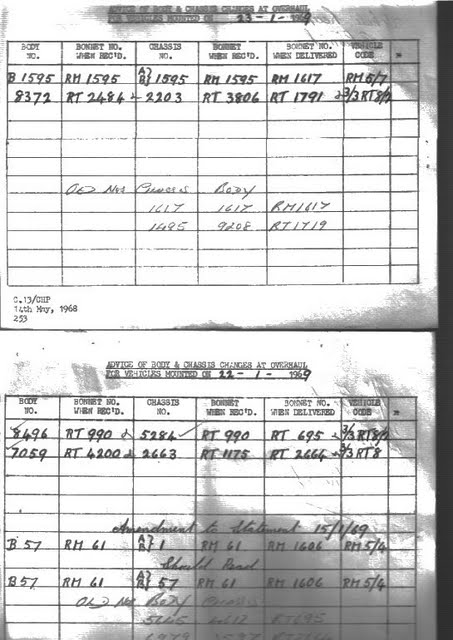 ADVICE OF BODY & CHASSIS CHANGES AT OVERHAUL
FOR VEHICLES MOUNTED ON 23-1-1969
BODY NO. BONNET NO. WHEN REC'D. CHASSIS NO. BONNET WHEN REC'D. BONNET NO. WHEN DELIVERED VEHICLE CODE
B 1595 RM 1595 A} B} 1595 RM 1595 RM 1617 RM 5/7
8372 RT 2484 2203 RT 3806 RT 1791 2/3RT8/2
OLD Nos Chassis Body
1617 1617 RM1617
1495 9208 RT1719
C.13/CHP
14th May, 1968
253
ADVICE OF BODY & CHASSIS CHANGES AT OVERHAUL
FOR VEHICLES MOUNTED ON 22-1-1969
BODY NO. BONNET NO. WHEN REC'D. CHASSIS NO. BONNET WHEN REC'D. BONNET NO. WHEN DELIVERED VEHICLE CODE
8496 RT 990 5284 RT 990 RT 695 2/3RT8/2
7059 RT 4200 2663 RT 1175 RT 2664 2/3RT8
Amendment to Statement 15/1/69
B 57 RM 61 A} B} 1 RM 61 RM 1606 RM 5/4
Should Read
B 57 RM 61 A} B} 57 RM 61 RM 1606 RM 5/4
OLD Nos Body Chassis
RT695